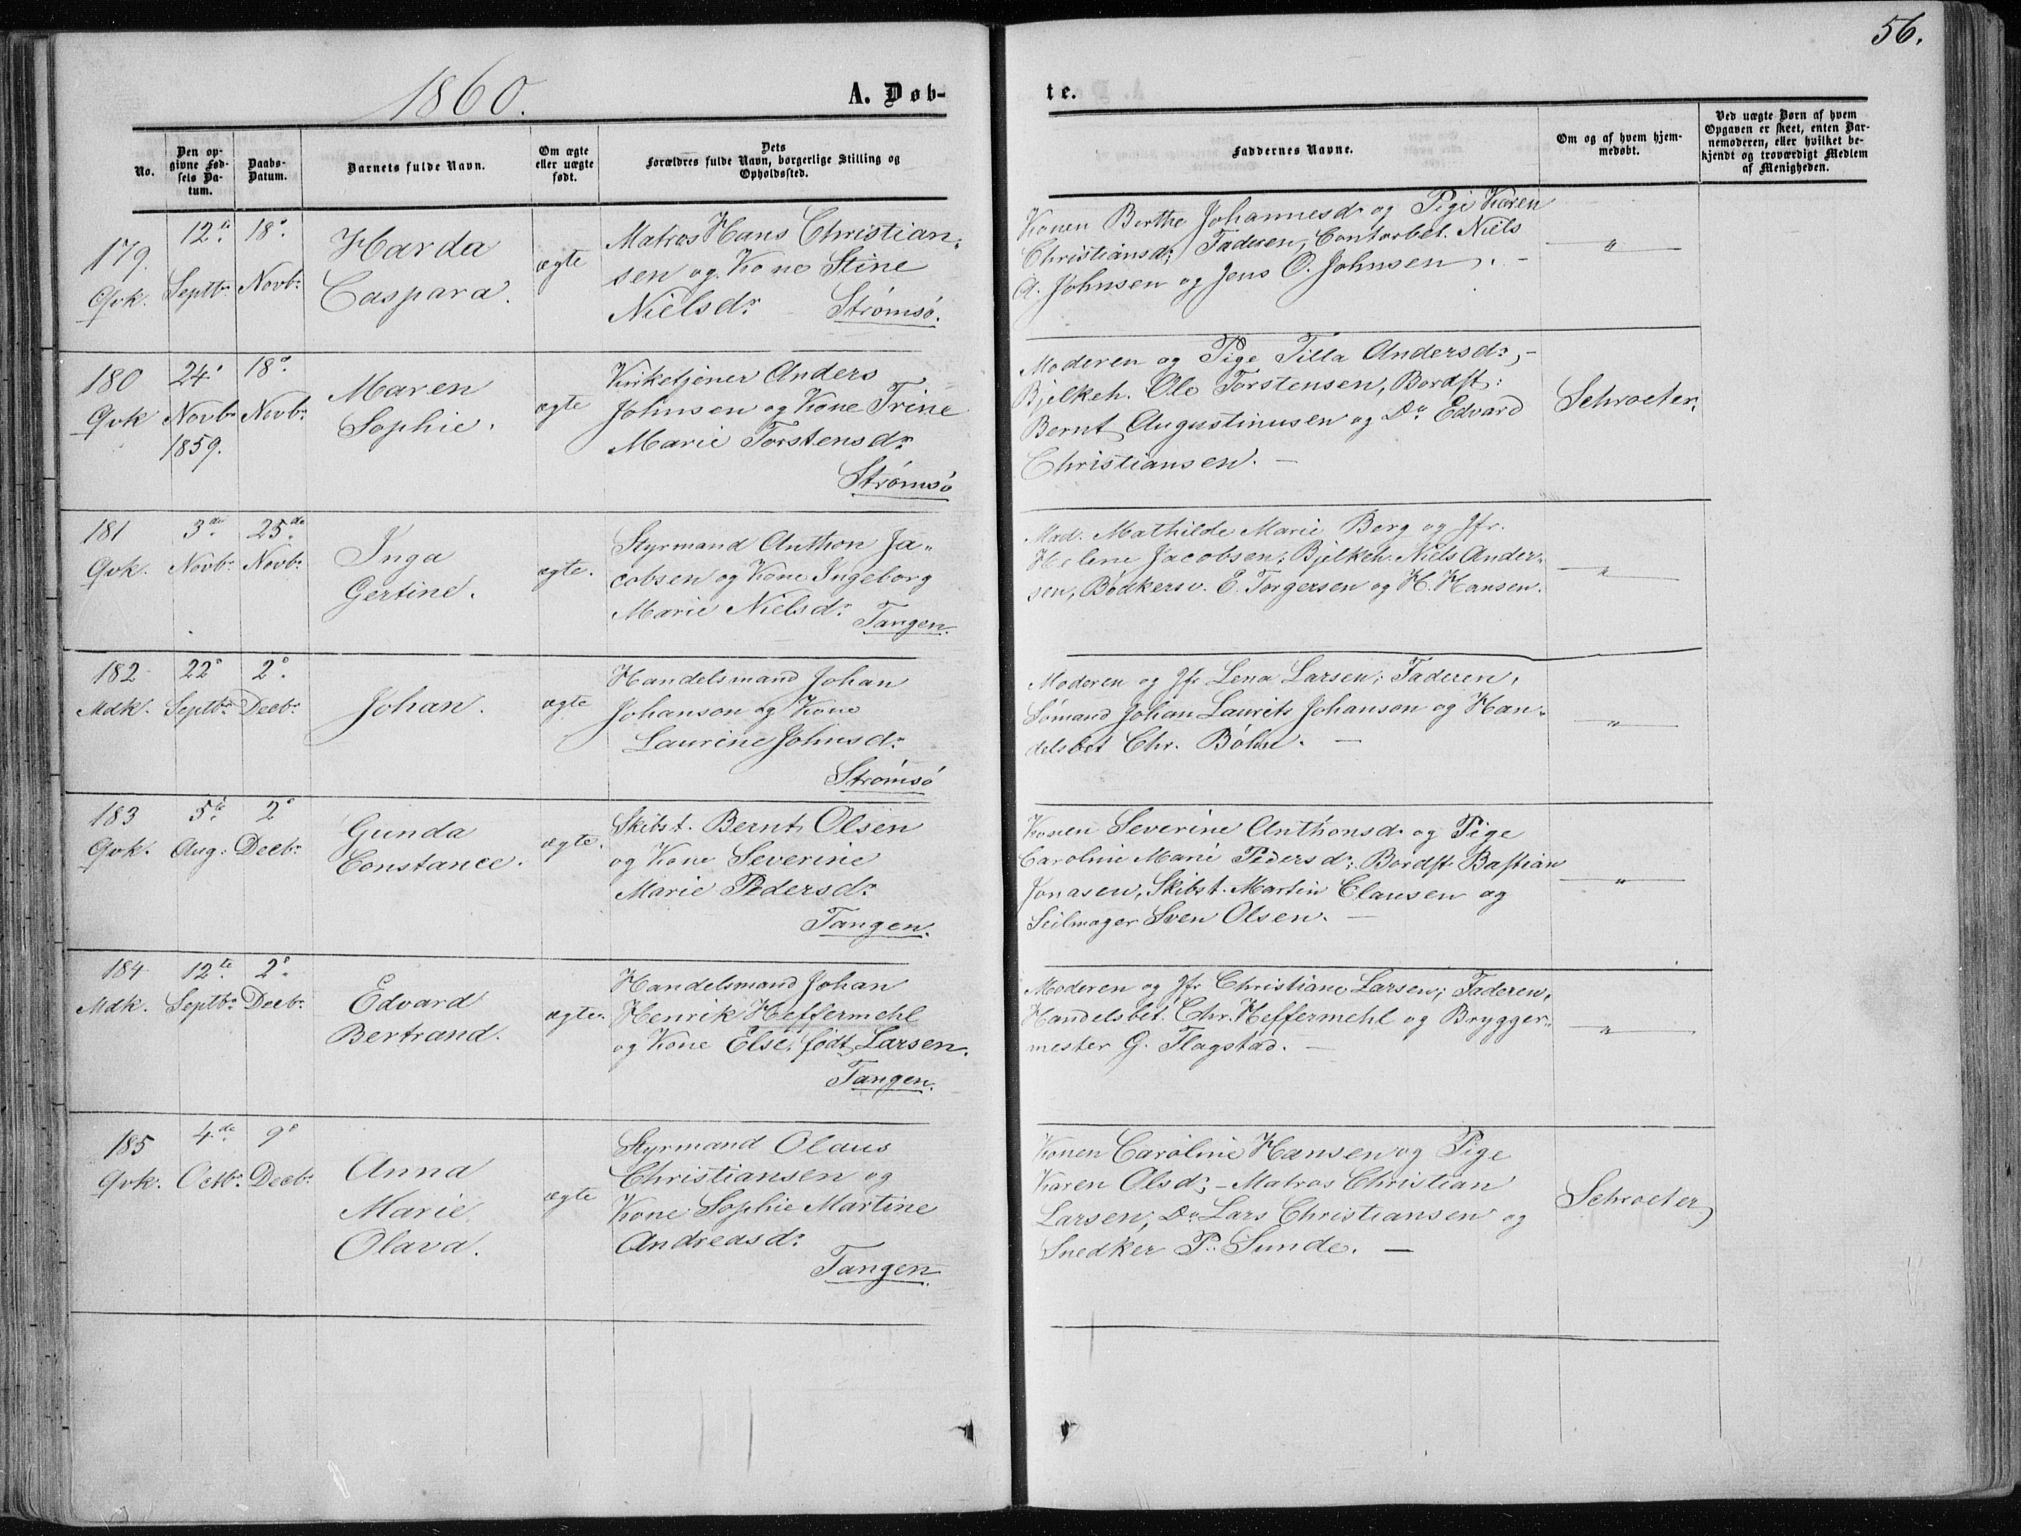 56.
1860.
A. Døb-
te.
No.
Den op-
givne Fød-
sels Da-
tum.
Daabs-
Datum.
Barnets fulde Navn.
Om ægte
eller uægte
født.
Dets
Forældres fulde Navn, borgerlige Stilling og
Opholdssted.
Faddernes Navne.
Om og af hvem hjem-
medøbt.
Ved uægte Børn af hvem
Opgaven er skeet, enten Bar-
nemoderen, eller hvilket be-
kjendt og troværdigt Medlem
af Menigheden.
179.
Qvk.
12te
Septbr.
18de
Novbr.
Harda
Caspara.
ægte
Matros Hans Christian-
sen og Kone Stine
Nielsdr.
Strømsø.
Konen Berthe Johannesd. og Pige Karen
Christiansd; Faderen, Contorbet. Niels
A. Johnsen og Jens O. Johnsen. -
"
180
Qvk
24'
Novbr
1859.
18de
Novbr.
Maren
Sophie.
ægte
Kirketjener Anders
Johnsen og Kone Trine
Marie Torstensdr.
Strømsø
Moderen og Pige Tilla Andersd; -
Bjelkeh. Ole Torstensen, Bordft:
Bernt Augustinusen og Do Edvard
Christiansen. -
Schroeter.
181
Qvk.
3die
Novbr.
25de
Novbr.
Inga
Gertine.
ægte.
Styrmand Anthon Ja-
cobsen og Kone Ingeborg
Marie Nielsdr.
Tangen.
Mad. Mathilde Marie Berg og Jfr.
Helene Jacobsen; Bjelkeh. Niels Ander-
sen, Bødkersv. E. Torgersen og H. Hansen.
"
182
Mdk.
22de
Septbr.
2den
Decbr.
Johan.
ægte
Handelsmand Johan
Johanson og Kone
Laurine Johnsdr.
Strømsø
Moderen og Jfr Lena Larsen; Faderen,
Sømand Johan Laurits Johanson og Han-
delsbet Chr. Bøhn. -
"
183
Qvk.
5te
Aug:
2den
Decbr.
Gunda
Constance.
ægte.
Skibst. Bernt Olsen
og Kone Severine
Marie Pedersdr.
Tangen.
Konen Severine Anthonsd. og Pige
Caroline Marie Pedersd; Bordft. Bastian
Jonasen, Skibst. Martin Clausen og
Seilmager Sven Olsen. -
"
184
Mdk.
12te
Septbr.
2den
Decbr.
Edvard
Bertrand.
ægte.
Handelsmand Johan
Henrik Heffermehl
og Kone Else, født Larsen.
Tangen.
Moderen og Jfr Christiane Larsen; Faderen,
Handelsbet. Chr. Heffermehl og Brygger-
mester G. Flagstad. -
"
185
Qvk.
4de
Octbr.
9de
Decbr.
Anna
Marie
Olava.
ægte
Styrmand Olaus
Christiansen og
Kone Sophie Martine
Andreasdr.
Tangen.
Konen Caroline Hansen og Pige
Karen Olsd; - Matros Christian
Larsen, Do Lars Christiansen og
Snedker P. Sunde. -
Schroeter